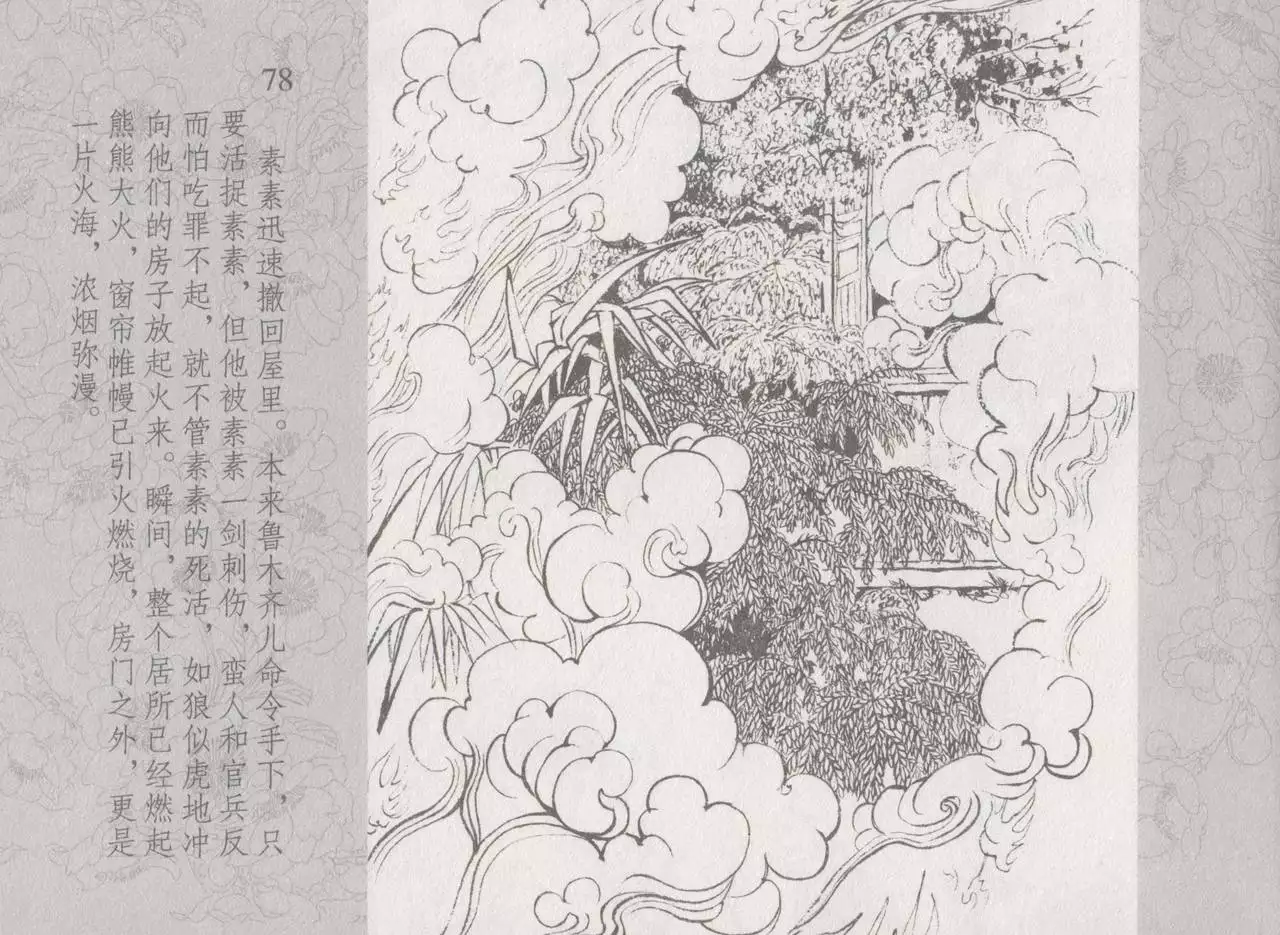 78
素素迅速撤回屋里。本来鲁木齐儿命令手下，只
要活捉素素，但他被素素一剑刺伤，蛮人和官兵反
而怕吃罪不起，就不管素素的死活，如狼似虎地冲
向他们的房子放起火来。瞬间，整个居所已经燃起
熊熊大火，窗帘帷幔已引火燃烧，房门之外，更是
一片火海，浓烟弥漫。